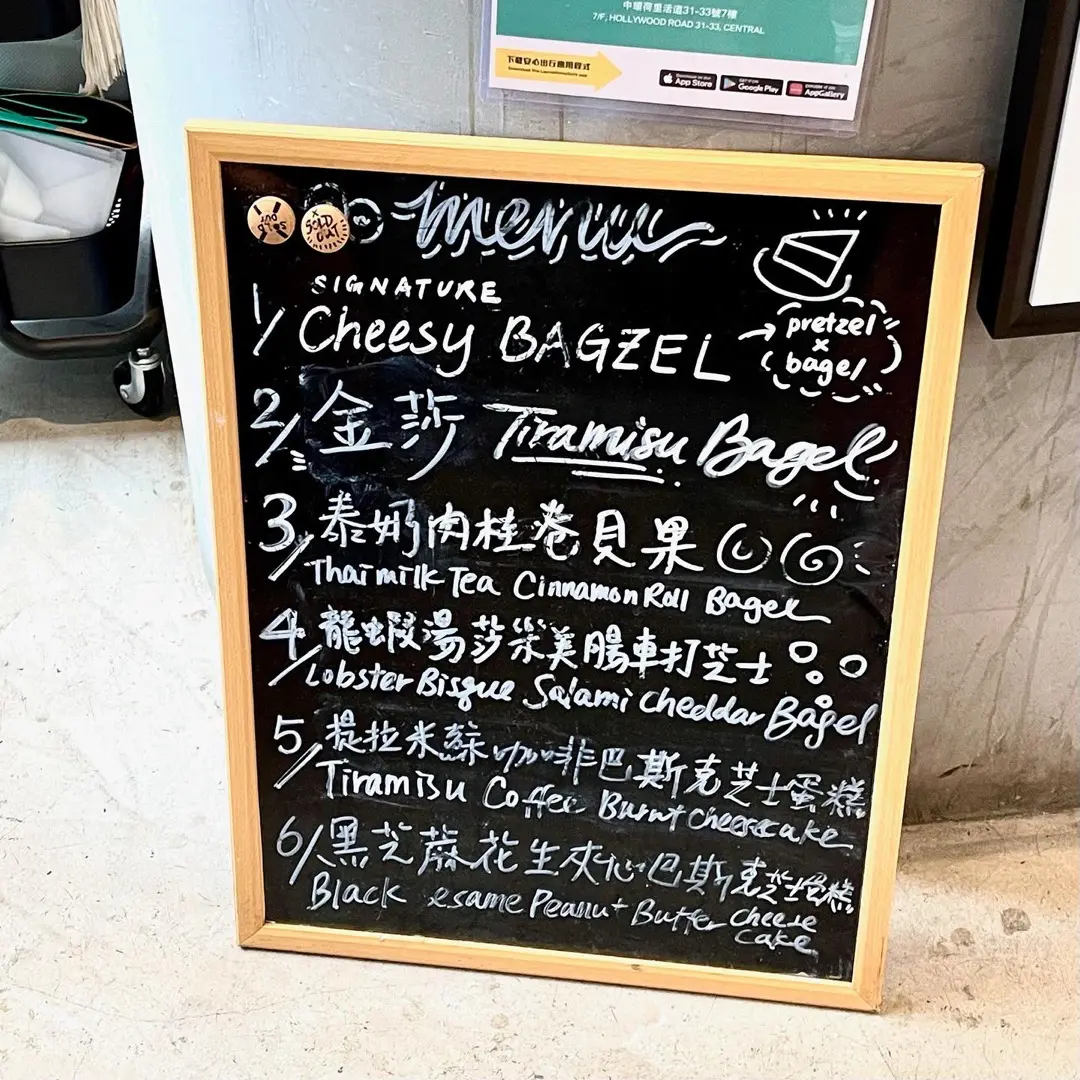 中環荷里活道31-33號7樓
7/F, HOLLYWOOD ROAD 31-33, CENTRAL
下載安心出行應用程式
Download the LeaveHomeSafe app
Download on the App Store
GET IT ON Google Play
EXPLORE IT ON AppGallery
SOLD OUT
SOLD OUT
menu
SIGNATURE
1/ Cheesy BAGZEL → pretzel x bagel
2/ 金莎 Tiramisu Bagel
3/ 泰奶肉桂卷貝果
Thai milk Tea Cinnamon Roll Bagel
4/ 龍蝦湯莎樂美腸車打芝士
Lobster Bisque Salami Cheddar Bagel
5/ 提拉米蘇咖啡巴斯克芝士蛋糕
Tiramisu Coffee Burnt cheesecake
6/ 黑芝蔴花生夾心巴斯克芝士蛋糕
Black esame Peanut Butter cheese cake